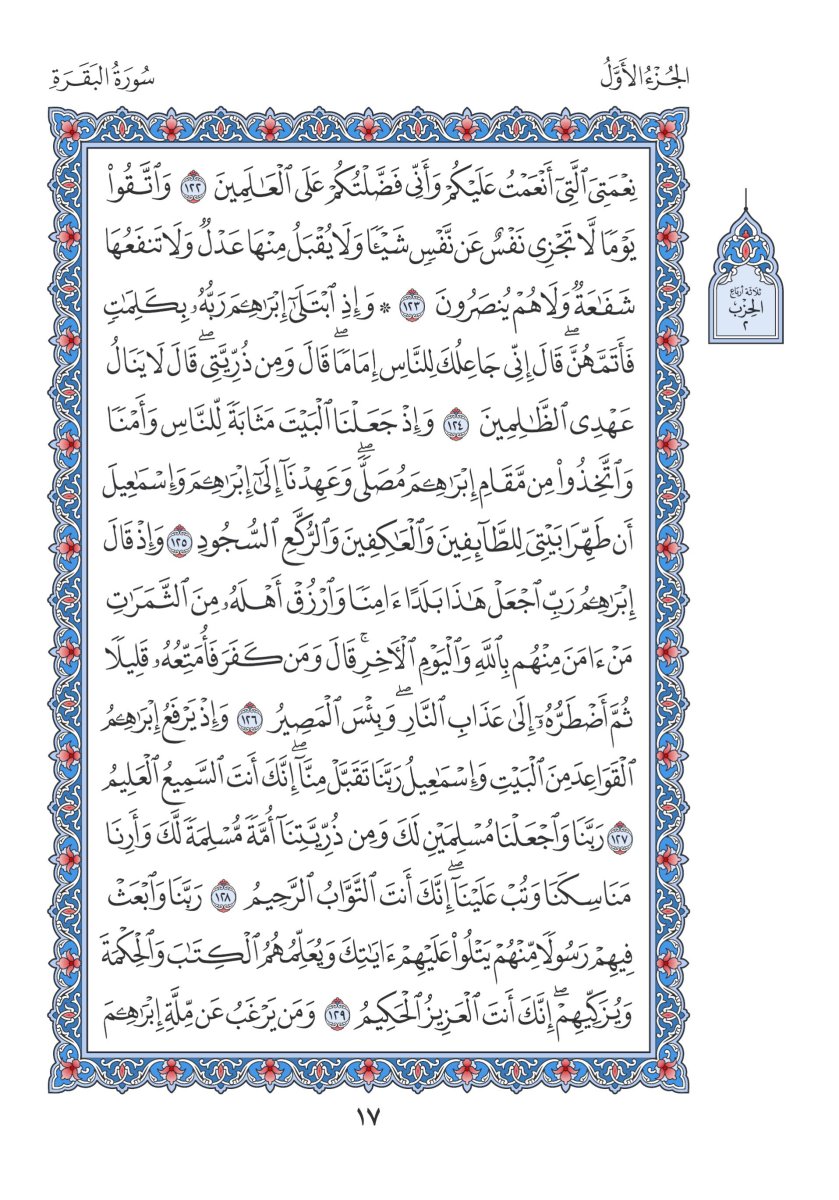 الجُزْءُ الأَوَّلُ
سُورَةُ البَقَرَةِ
نِعْمَتِىَ ٱلَّتِىٓ أَنْعَمْتُ عَلَيْكُمْ وَأَنِّى فَضَّلْتُكُمْ عَلَى ٱلْعَـٰلَمِينَ ١٢٢ وَٱتَّقُوا۟
يَوْمًا لَّا تَجْزِى نَفْسٌ عَن نَّفْسٍ شَيْـًٔا وَلَا يُقْبَلُ مِنْهَا عَدْلٌ وَلَا تَنفَعُهَا
شَفَـٰعَةٌ وَلَا هُمْ يُنصَرُونَ ١٢٣ * وَإِذِ ٱبْتَلَىٰٓ إِبْرَٰهِـۧمَ رَبُّهُۥ بِكَلِمَـٰتٍ
فَأَتَمَّهُنَّ ۖ قَالَ إِنِّى جَاعِلُكَ لِلنَّاسِ إِمَامًا ۖ قَالَ وَمِن ذُرِّيَّتِى ۖ قَالَ لَا يَنَالُ
عَهْدِى ٱلظَّـٰلِمِينَ ١٢٤ وَإِذْ جَعَلْنَا ٱلْبَيْتَ مَثَابَةً لِّلنَّاسِ وَأَمْنًا
وَٱتَّخِذُوا۟ مِن مَّقَامِ إِبْرَٰهِـۧمَ مُصَلًّى ۖ وَعَهِدْنَآ إِلَىٰٓ إِبْرَٰهِـۧمَ وَإِسْمَـٰعِيلَ
أَن طَهِّرَا بَيْتِىَ لِلطَّآئِفِينَ وَٱلْعَـٰكِفِينَ وَٱلرُّكَّعِ ٱلسُّجُودِ ١٢٥ وَإِذْ قَالَ
إِبْرَٰهِـۧمُ رَبِّ ٱجْعَلْ هَـٰذَا بَلَدًا ءَامِنًا وَٱرْزُقْ أَهْلَهُۥ مِنَ ٱلثَّمَرَٰتِ
مَنْ ءَامَنَ مِنْهُم بِٱللَّهِ وَٱلْيَوْمِ ٱلْـَٔاخِرِ ۚ قَالَ وَمَن كَفَرَ فَأُمَتِّعُهُۥ قَلِيلًا
ثُمَّ أَضْطَرُّهُۥٓ إِلَىٰ عَذَابِ ٱلنَّارِ ۖ وَبِئْسَ ٱلْمَصِيرُ ١٢٦ وَإِذْ يَرْفَعُ إِبْرَٰهِـۧمُ
ٱلْقَوَاعِدَ مِنَ ٱلْبَيْتِ وَإِسْمَـٰعِيلُ رَبَّنَا تَقَبَّلْ مِنَّآ ۖ إِنَّكَ أَنتَ ٱلسَّمِيعُ ٱلْعَلِيمُ
١٢٧ رَبَّنَا وَٱجْعَلْنَا مُسْلِمَيْنِ لَكَ وَمِن ذُرِّيَّتِنَآ أُمَّةً مُّسْلِمَةً لَّكَ وَأَرِنَا
مَنَاسِكَنَا وَتُبْ عَلَيْنَآ ۖ إِنَّكَ أَنتَ ٱلتَّوَّابُ ٱلرَّحِيمُ ١٢٨ رَبَّنَا وَٱبْعَثْ
فِيهِمْ رَسُولًا مِّنْهُمْ يَتْلُوا۟ عَلَيْهِمْ ءَايَـٰتِكَ وَيُعَلِّمُهُمُ ٱلْكِتَـٰبَ وَٱلْحِكْمَةَ
وَيُزَكِّيهِمْ ۖ إِنَّكَ أَنتَ ٱلْعَزِيزُ ٱلْحَكِيمُ ١٢٩ وَمَن يَرْغَبُ عَن مِّلَّةِ إِبْرَٰهِـۧمَ
ثلاثة أرباع
الحِزْب
٢
١٧